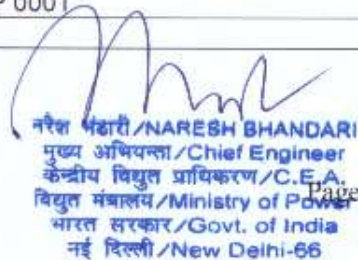 P 0001
नरेश भंडारी/NARESH BHANDARI
मुख्य अभियन्ता/Chief Engineer
केन्द्रीय विद्युत प्राधिकरण/C.E.A.
विद्युत मंत्रालय/Ministry of Power
Page
भारत सरकार/Govt. of India
नई दिल्ली/New Delhi-66